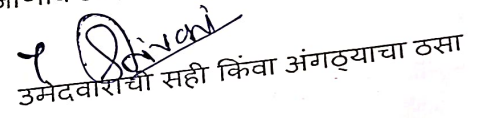 Shivani
उमेदवाराची सही किंवा अंगठ्याचा ठसा